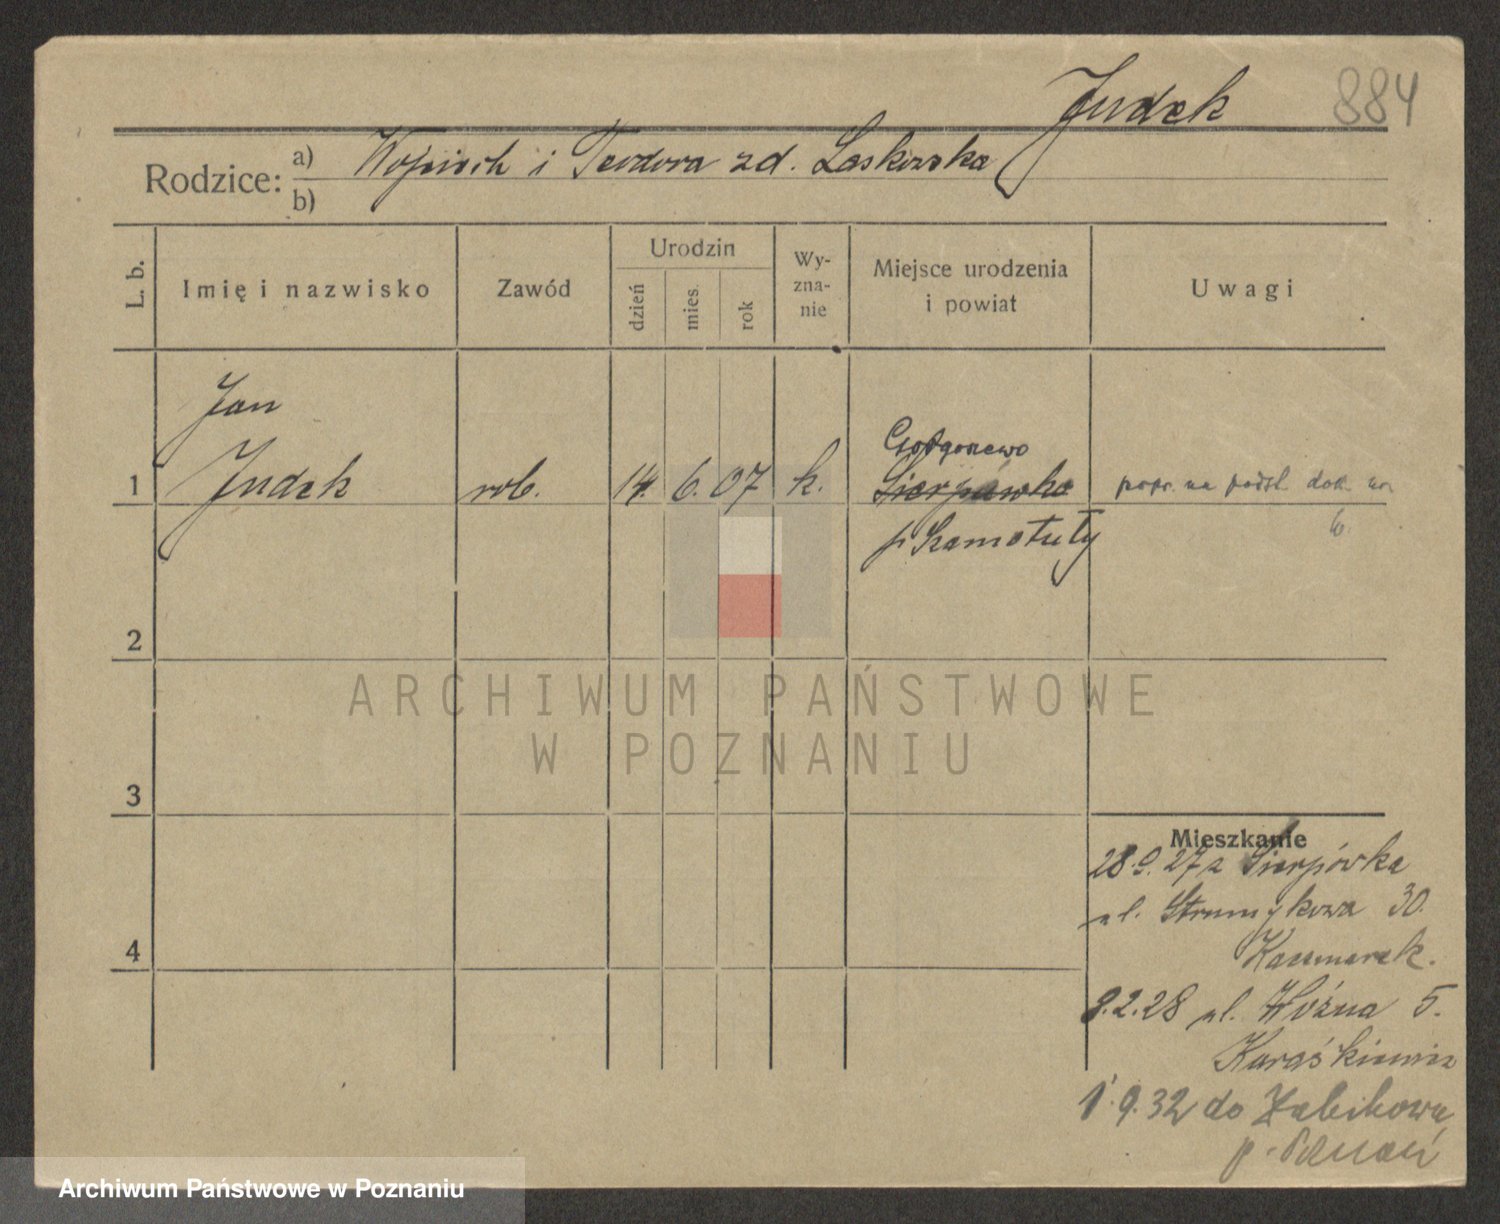 Judek 884
Rodzice: a) Wojciech i Teodora zd. Laskowska
b)
L. b. Imię i nazwisko Zawód Urodzin dzień mies. rok Wyznanie Miejsce urodzenia i powiat Uwagi
Jan
Czołgoszewo
1 Judek rob. 14. 6. 07 k. Sierpówko popr. na podst. dok. w.
p Szamotuły
2
3
4
Mieszkanie
28.9.27 z Sierpówka
ul. Strumykowa 30.
Kaczmarek.
8.2.28 ul. Woźna 5.
Karaśkiewicz
1.9.32 do Żabikowa
p. Poznań
ARCHIWUM PAŃSTWOWE
W POZNANIU
Archiwum Państwowe w Poznaniu